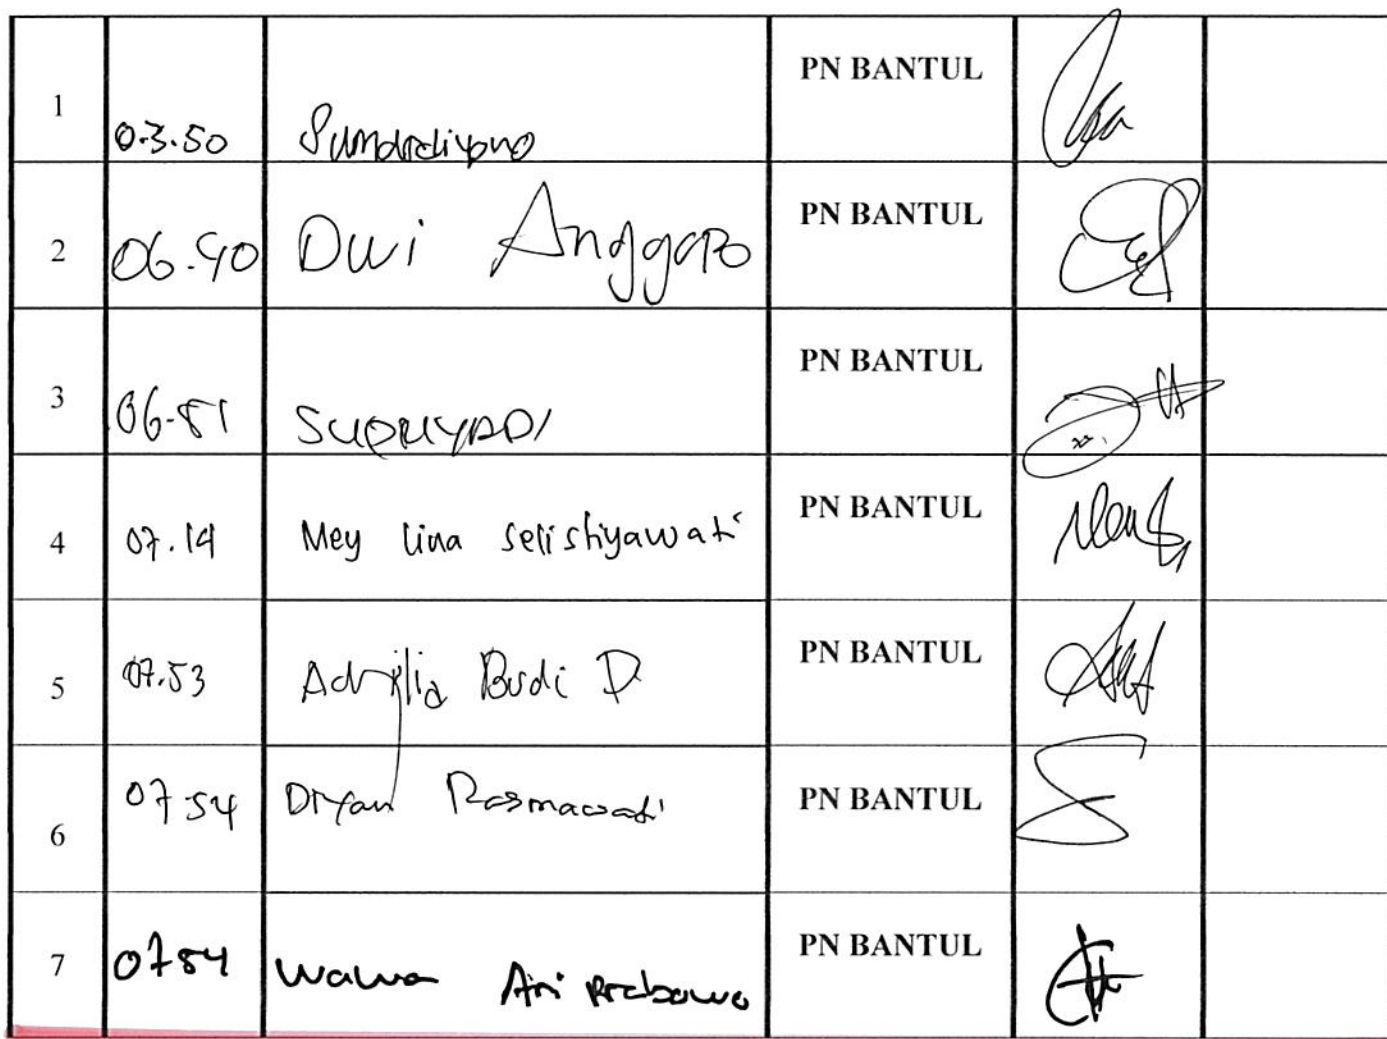 1 0.3.50 Sumardiyono PN BANTUL
2 06.40 Dwi Anggoro PN BANTUL
3 06.51 SUPRIYADI PN BANTUL
4 07.14 Mey lina selistiyawati PN BANTUL
5 07.53 Budi P PN BANTUL
6 07.54 Dryan Rasmawati PN BANTUL
7 07 54 Wawa Ari Prabowo PN BANTUL